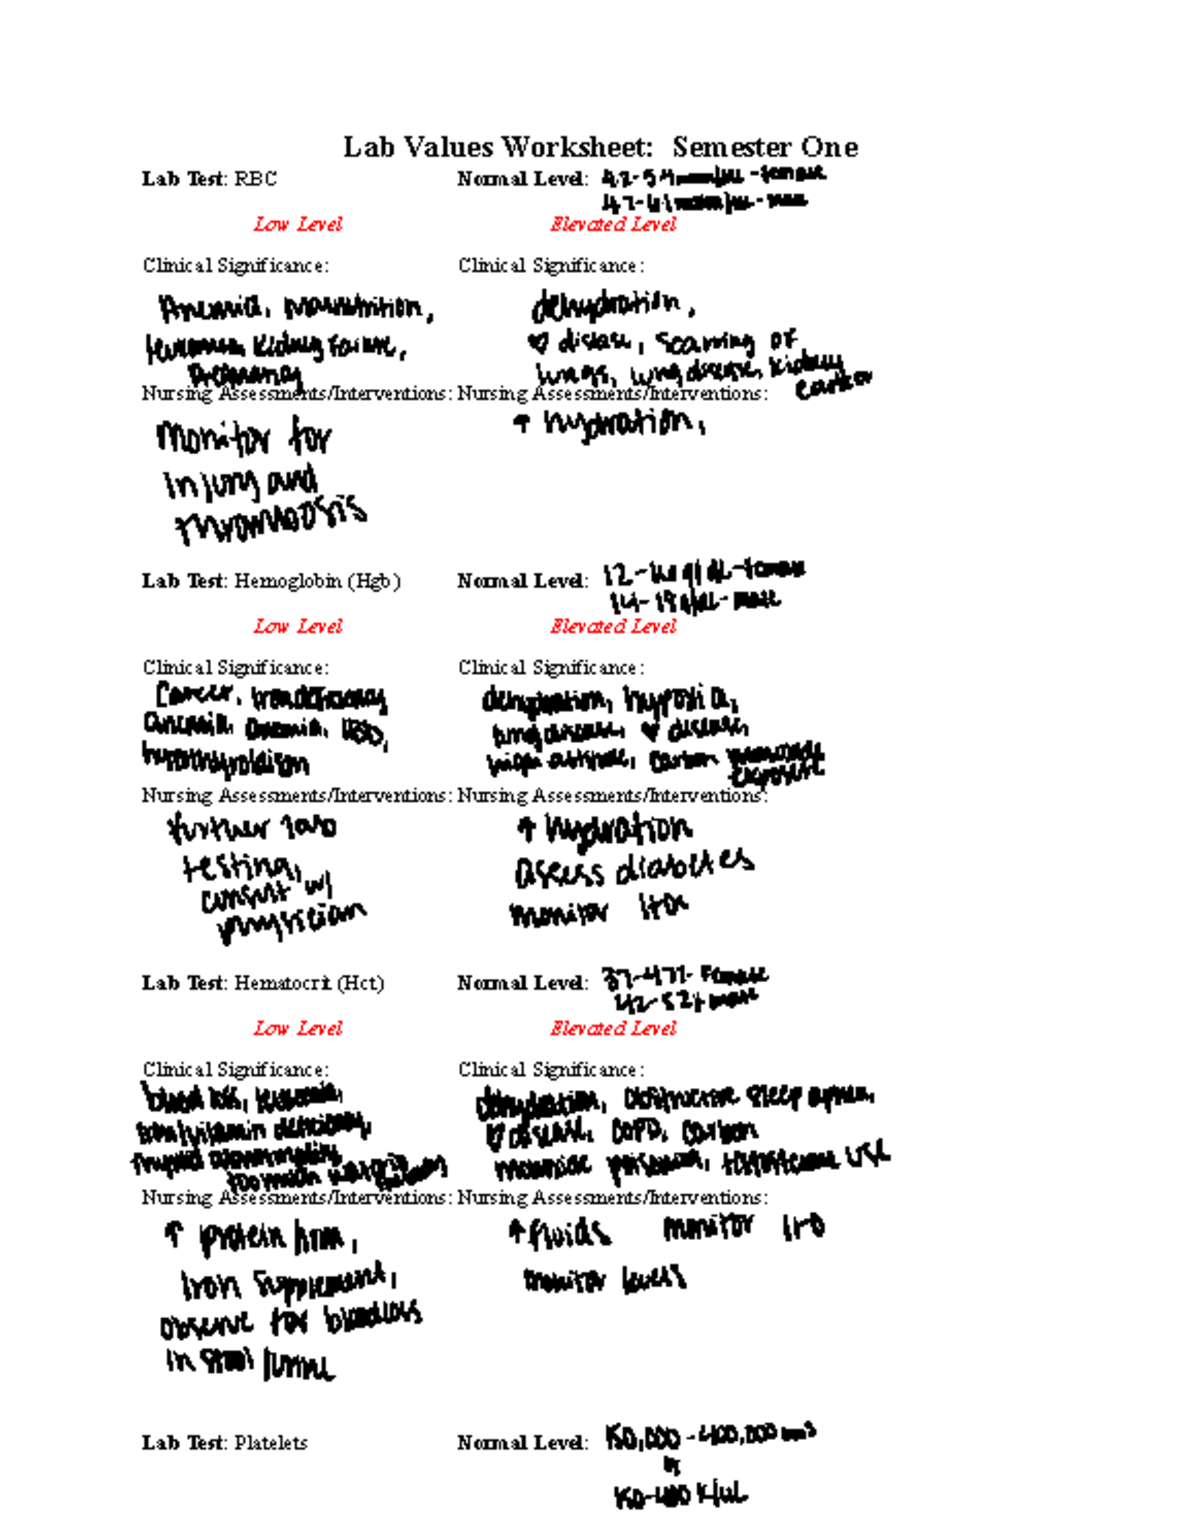 Lab Values Worksheet: Semester One
Lab Test: RBC Normal Level: 4.2-5.4 -female
4.7-6.1 - male
Low Level Elevated Level
Clinical Significance: Clinical Significance:
Anemia, malnutrition, dehydration,
leukemia, kidney failure, ♡ disease, scarring of
Pregnancy lungs, lung disease, kidney
cancer
Nursing Assessments/Interventions: Nursing Assessments/Interventions:
Monitor for ↑ hydration,
injury and
thrombosis
Lab Test: Hemoglobin (Hgb) Normal Level: 12-16 g/dL-female
14-18 g/dL- male
Low Level Elevated Level
Clinical Significance: Clinical Significance:
Cancer, iron deficiency dehydration, hypoxia,
anemia, anemia, IBD, lung disease, ♡ disease,
high altitude, carbon monoxide
exposure
Nursing Assessments/Interventions: Nursing Assessments/Interventions:
further lab ↑ hydration
testing, assess diabetes
consult w/ monitor I+Os
physician
Lab Test: Hematocrit (Hct) Normal Level: 37-47%- Female
42-52% male
Low Level Elevated Level
Clinical Significance: Clinical Significance:
blood loss, leukemia, dehydration, obstructive sleep apnea,
iron/vitamin deficiency, ♡ disease, COPD, carbon
thyroid abnormality monoxide poisoning, testosterone use
too much
Nursing Assessments/Interventions: Nursing Assessments/Interventions:
↑ protein ↑ fluids monitor I+O
Iron supplement, monitor levels
observe for blood loss
in stool /urine
Lab Test: Platelets Normal Level: 150,000 - 400,000 mm3
or
150-400 K/uL